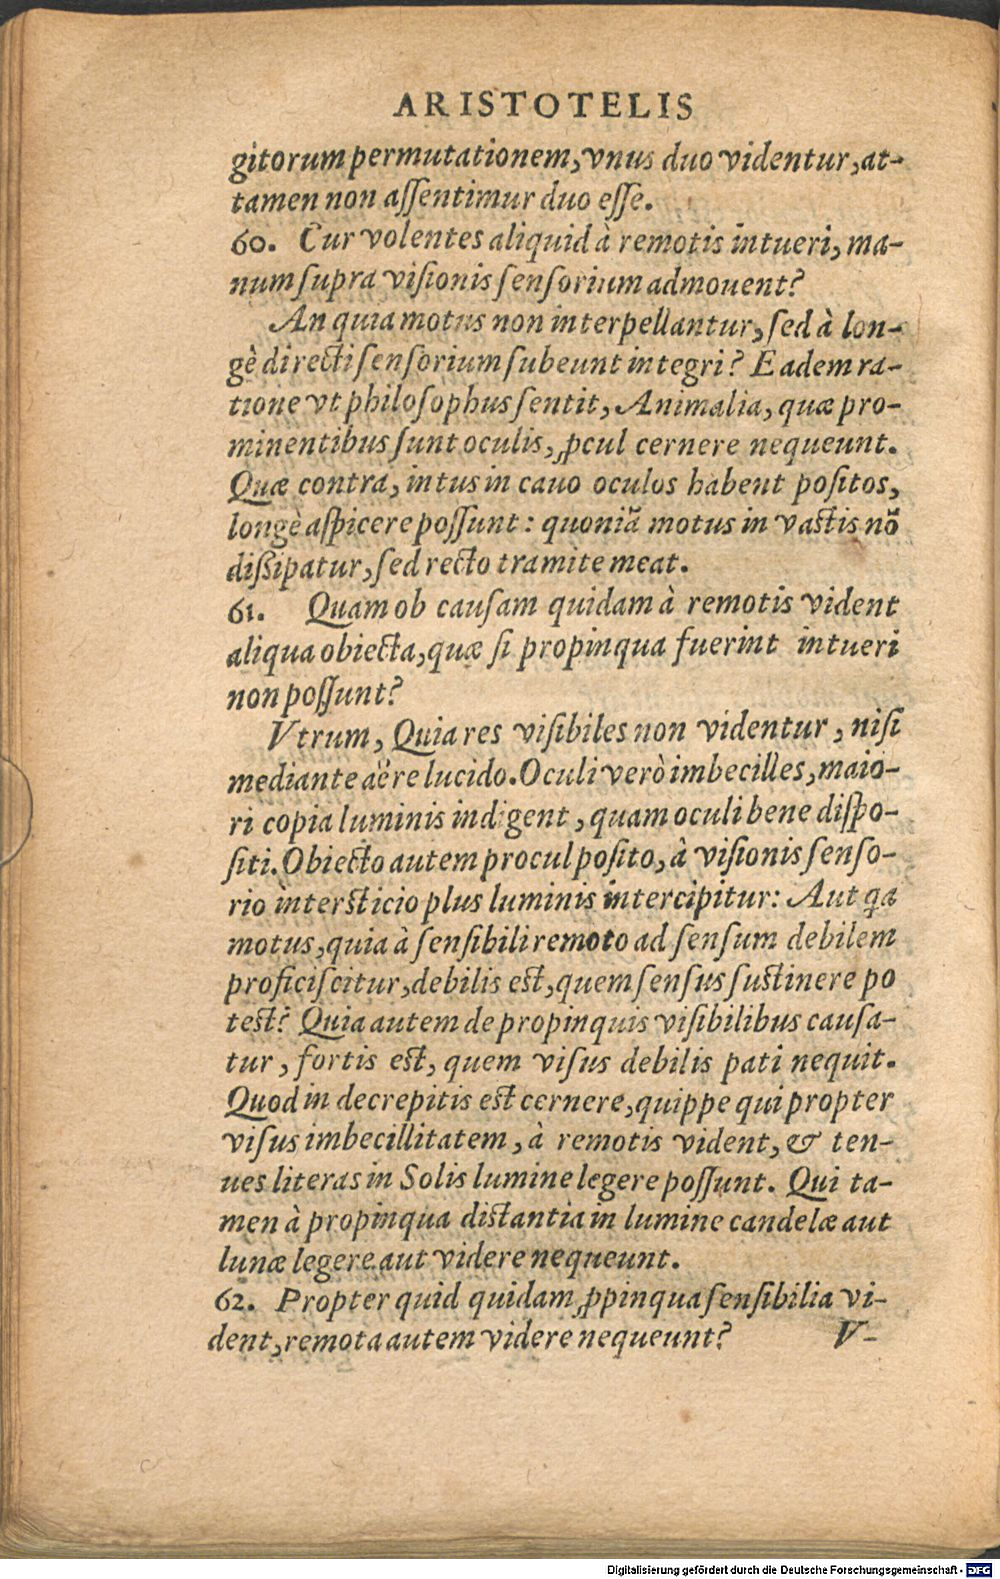 ARISTOTELIS
gitorum permutationem, vnus duo videntur, at-
tamen non aſſentimur duo eſſe.
60. Cur volentes aliquid à remotis intueri, ma-
num ſupra viſionis ſenſorium admouent?
An quia motus non interpellantur, ſed à lon-
gè directi ſenſorium ſubeunt integri? Eadem ra-
tione vt philoſophus ſentit, Animalia, quæ pro-
minentibus ſunt oculis, ꝓcul cernere nequeunt.
Quæ contra, intus in cauo oculos habent poſitos,
longè aſpicere poſſunt: quoniã motus in vastis nõ
dißipatur, ſed recto tramite meat.
61. Quam ob cauſam quidam à remotis vident
aliqua obiecta, quæ ſi propinqua fuerint intueri
non poſſunt?
Vtrum, Quia res viſibiles non videntur, niſi
mediante aëre lucido. Oculi verò imbecilles, maio-
ri copia luminis indigent, quam oculi bene diſpo-
ſiti. Obiecto autem procul poſito, à viſionis ſenſo-
rio interſticio plus luminis intercipitur: Aut ꝗa
motus, quia à ſenſibili remoto ad ſenſum debilem
proficiſcitur, debilis eſt, quem ſenſus ſuſtinere po
teſt? Quia autem de propinquis viſibilibus cauſa-
tur, fortis eſt, quem viſus debilis pati nequit.
Quod in decrepitis eſt cernere, quippe qui propter
viſus imbecillitatem, à remotis vident, & ten-
ues literas in Solis lumine legere poſſunt. Qui ta-
men à propinqua diſtantia in lumine candelæ aut
lunæ legere aut videre nequeunt.
62. Propter quid quidam ꝓpinqua ſenſibilia vi-
dent, remota autem videre nequeunt?
V-
Digitalisierung gefördert durch die Deutsche Forschungsgemeinschaft - DFG